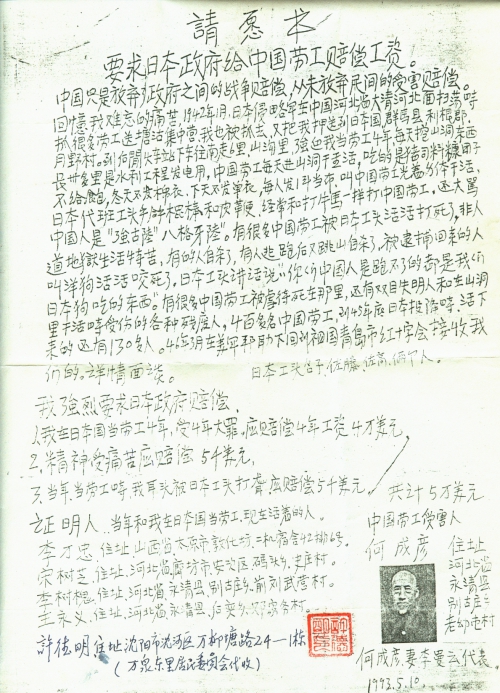 請愿书
要求日本政府给中国劳工赔偿工资。
中国只是放弃了政府之间的战争赔偿,从未放弃民间的受害赔偿。
回忆我难忘的痛苦,1942年1月,日本侵略军在中国河北省大清河北面扫荡時
抓很多劳工送塘沽集中营,我也被抓去,又把我押送到日本国群馬县利根郡,
月野村。到后閑火车站下车往南走6里,山沟里,强迫我当劳工4年,每天挖山洞东西
长廿多里是水利工程发电用,中国劳工每天进山洞干苦活,吃的是猪司料糠团子
不给飽,冬天不发棉衣,下天不发单衣,每人发1耳当布,叫中国劳工光着干活,
日本代班工头,經常和打牛馬一样打中国劳工,还大罵
中国人是"强古陸"八格牙陸"。有很多中国劳工被日本工头活活打死了,非人
道地獄生活特苦,有的人自杀了,有人逃跑后又跳山自杀了,被逮捕回来的人
叫洋狗活活咬死了,日本工头讲话说"你们中国人是跑不了的都是我们
日本狗吃的东西。"有很多中国劳工被虐待死在那里,还有双目失明人和在山洞
里干活時受伤的各种残废人,4百多名中国劳工,到45年底日本投降時,活下
来的还有130多人。46年3月在美军帮助下回到祖国青島市紅十字会接收我
们的。詳情面谈。
日本工头合子,佐藤,佐高,俩个人。
我强烈要求日本政府赔偿,
1.我在日本国当劳工4年,受4年大罪,应赔偿4年工资4万美元,
2.精神受痛苦应赔偿 5千美元,
3.当年当劳工時,我耳头被日本工头打聋应赔偿5千美元。
共计5万美元
証明人,当年和我在日本国当劳工,现在活着的人。
李才忠,住址,山西省太原市敦化坊,
宋树芝,住址,河北省廊坊市安次区码头乡,
李树槐,住址,河北省永清县,别古庄乡前刘武营村。
王永义,住址,河北省永清县,后奕乡
許德明住址沈阳市沈河区万柳塘路24—1栋
(万泉东里居民委員会代收)
中国劳工受害人
何成彦
住址
河北省
永清县
別古庄乡
村
何成彦,妻李 代表。
1993.5.10.